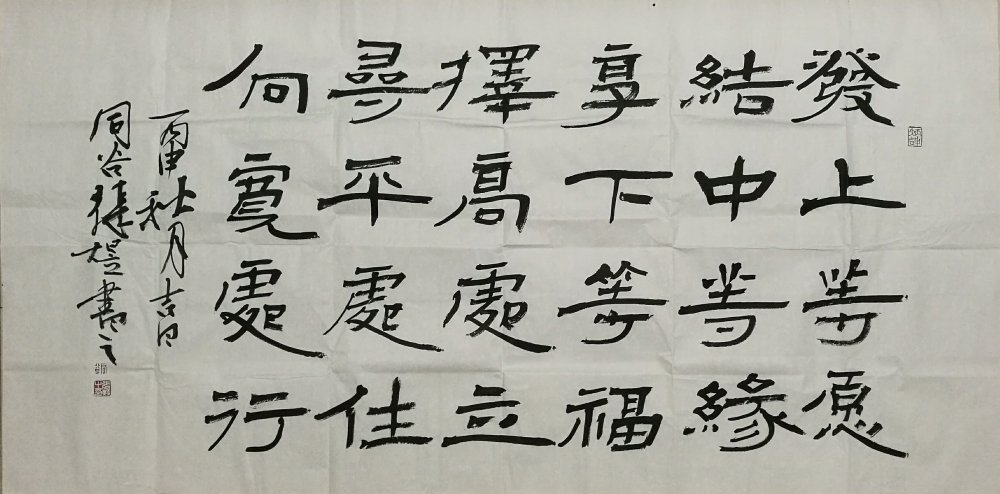 發上等愿
結中等緣
享下等福
擇高處立
尋平處住
向寬處行
丙申秋月吉日
同谷張煜書之